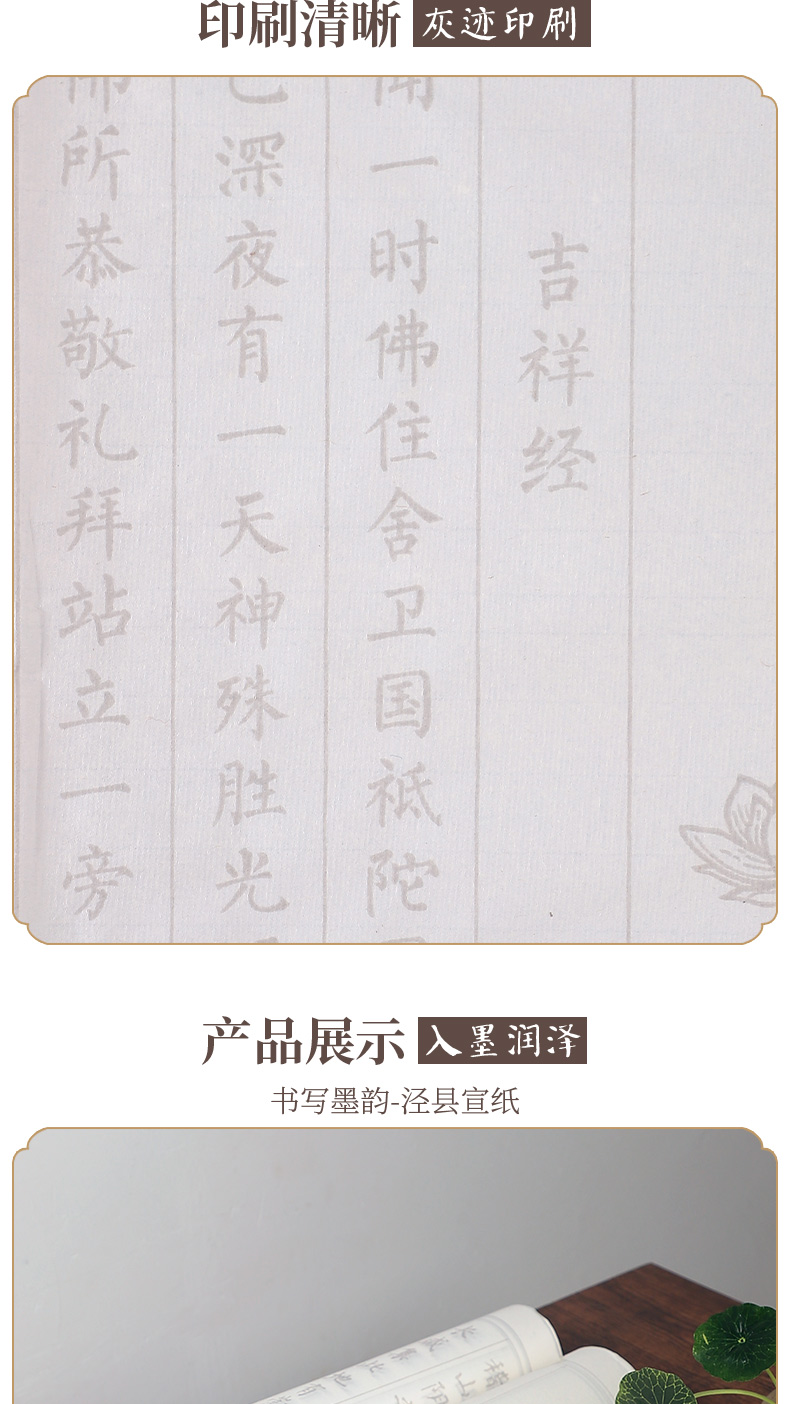 印刷清晰 灰迹印刷
吉祥经
闻一时佛住舍卫国祗陀
已深夜有一天神殊胜光
佛所恭敬礼拜站立一旁
产品展示 入墨润泽
书写墨韵-泾县宣纸